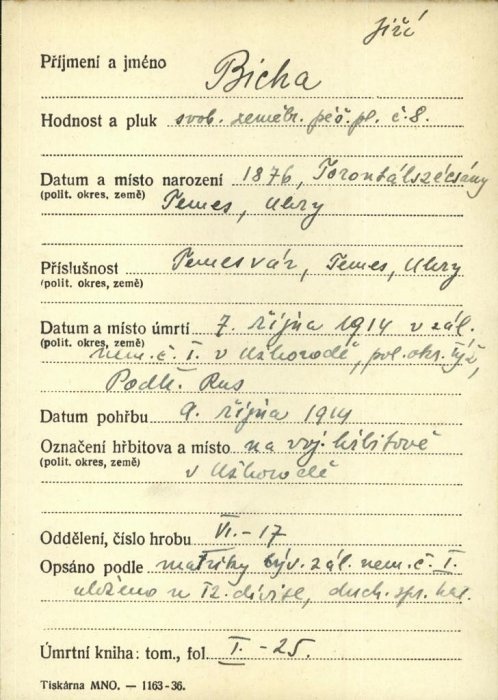 Jiří
Příjmení a jméno Bicha
Hodnost a pluk svob. zeměbr. pěš. pl. č. 8.
Datum a místo narození 1876, Torontálszécsány
(polit. okres, země) Temes, Uhry
Příslušnost Temesvár, Temes, Uhry
(polit. okres, země)
Datum a místo úmrtí 7. října 1914 v zál.
(polit. okres, země) nem. č. I. v Užhorodě, pol. okr. týž,
Podk. Rus
Datum pohřbu 9. října 1914
Označení hřbitova a místo na voj. hřbitově
(polit. okres, země) v Užhorodě
Oddělení, číslo hrobu VI. - 17
Opsáno podle matriky býv. zál. nem. č. I.
uloženo u 12. divise, duch. spr.
Úmrtní kniha: tom., fol. I. - 25.
Tiskárna MNO. — 1163-36.